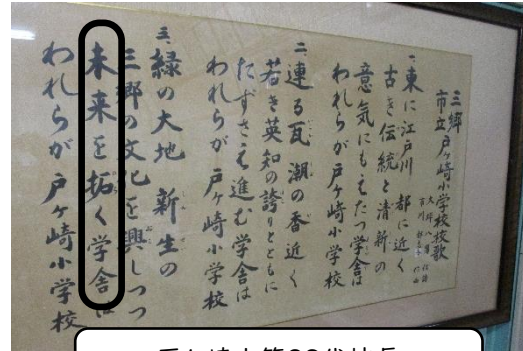 三郷
市立戸ヶ崎小学校校歌
一、東に江戸川 都に近く
古き伝統と清新の
意気にもえたつ学舎は
われらが戸ヶ崎小学校
二、連る瓦 潮の香近く
若き英知の誇りとともに
たずさえ進む学舎は
われらが戸ヶ崎小学校
三、緑の大地 新生の
三郷の文化を興しつつ
未来を拓く学舎は
われらが戸ヶ崎小学校